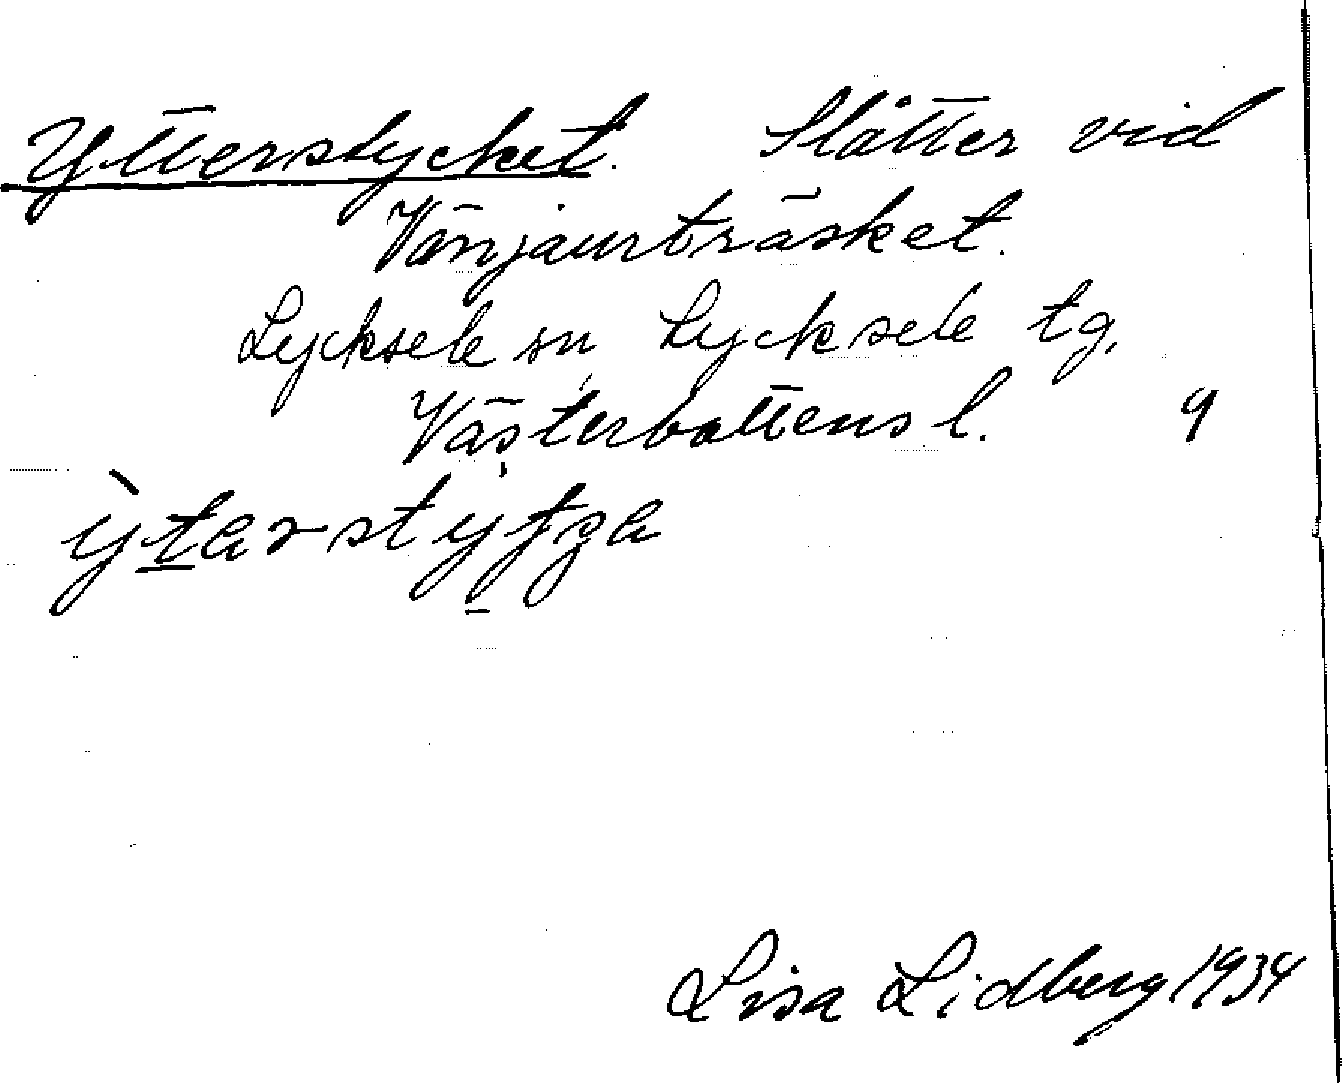 Ytterstycket. Slåtter vid
Vänjaurträsket.
Lycksele sn Lycksele tg.
Västerbottens l. 9
Lisa Lidberg 1934